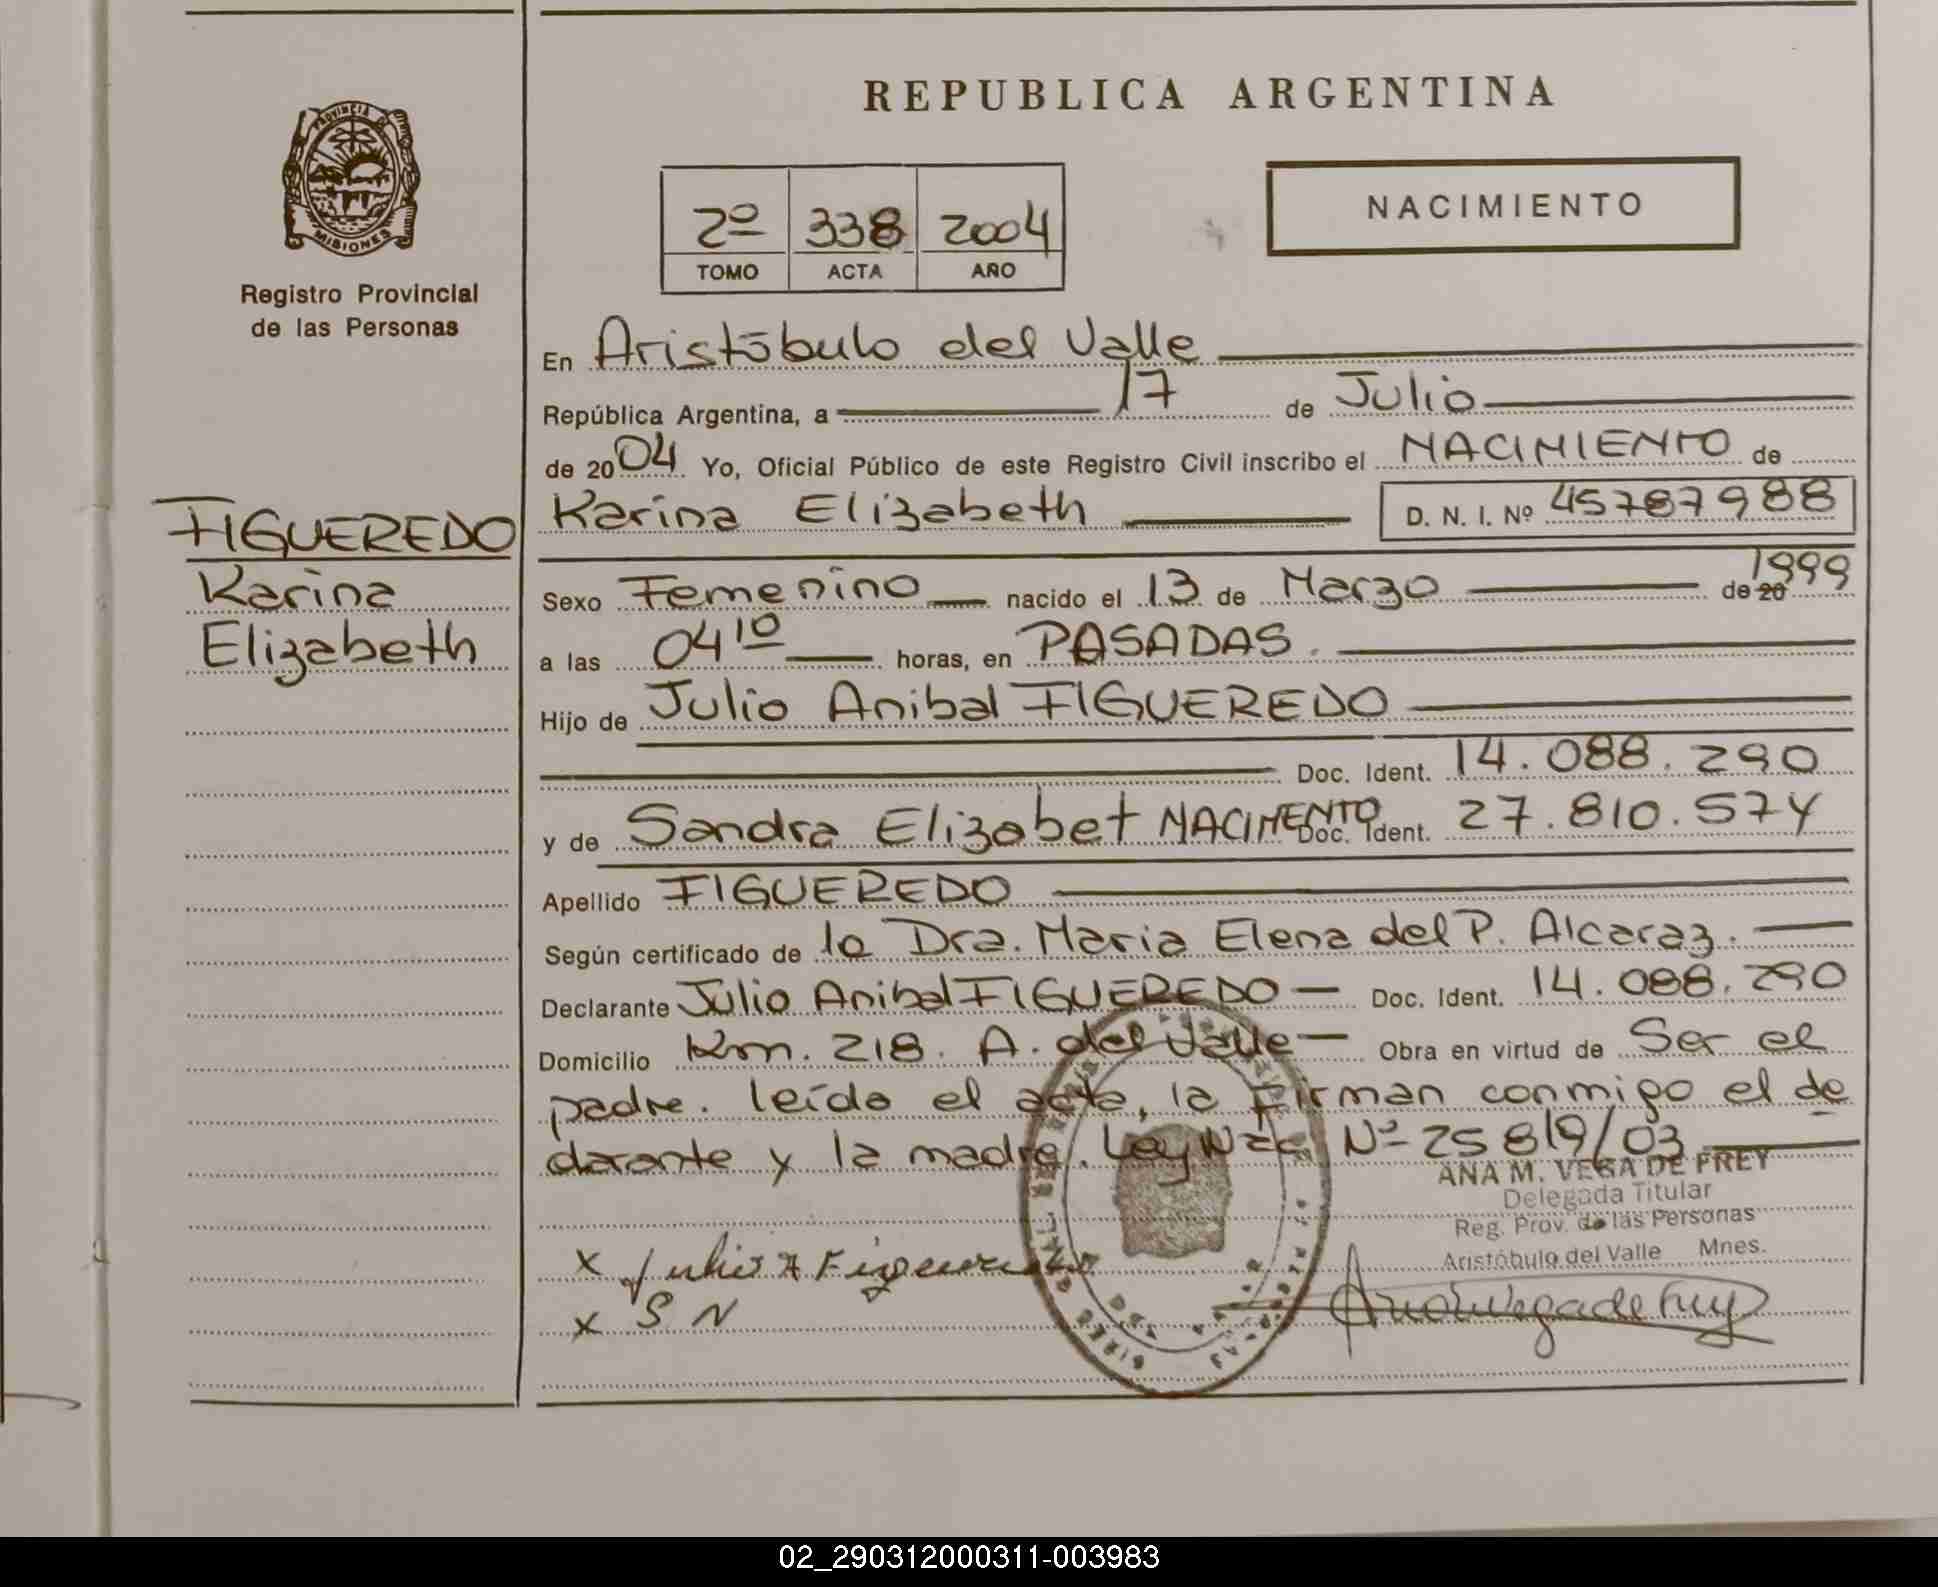 REPUBLICA ARGENTINA
PROVINCIA DE
MISIONES
Registro Provincial
de las Personas
2º 338 2004
TOMO ACTA AÑO
NACIMIENTO
En Aristóbulo del Valle
República Argentina, a 17 de Julio
de 2004 Yo, Oficial Público de este Registro Civil inscribo el NACIMIENTO de
FIGUEREDO
Karina
Elizabeth
Karina Elizabeth D. N. I. Nº 45787988
Sexo Femenino nacido el 13 de Marzo de 20 1999
a las 04 10 horas, en PASADAS.
Hijo de Julio Anibal FIGUEREDO
Doc. Ident. 14.088.290
y de Sandra Elizabet NACIMENTO Doc. Ident. 27.810.574
Apellido FIGUEREDO
Según certificado de la Dra. Maria Elena del P. Alcaraz.
Declarante Julio Anibal FIGUEREDO Doc. Ident. 14.088.290
Domicilio Km. 218. A. del Valle Obra en virtud de Ser el
padre. leída el acta, la firman conmigo el de
clarante y la madre. Ley Nac. Nº 25819/03
ANA M. VEGA DE FREY
Delegada Titular
Reg. Prov. de las Personas
Aristóbulo del Valle Mnes.
x Julio A Figueredo
x S N
02_290312000311-003983